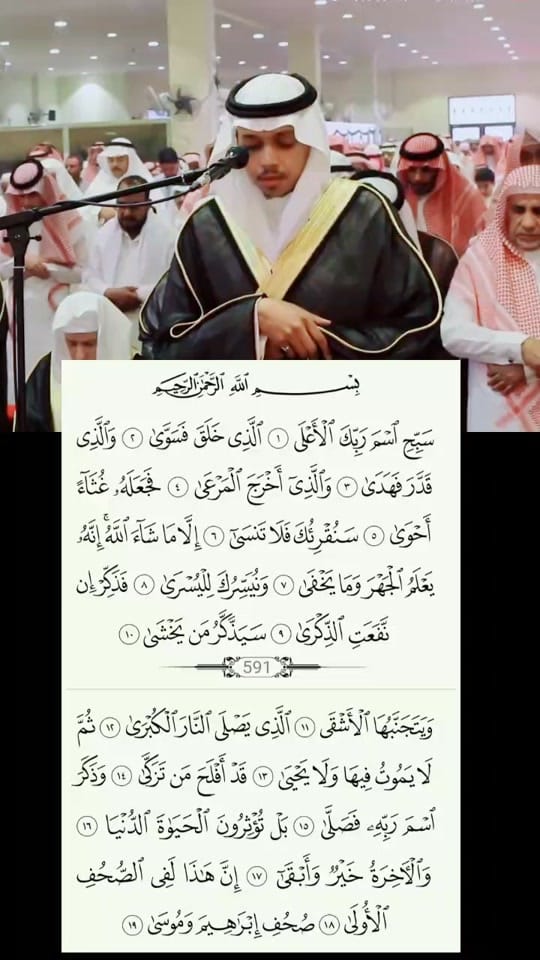 بِسْمِ ٱللَّهِ ٱلرَّحْمَٰنِ ٱلرَّحِيمِ
سَبِّحِ ٱسْمَ رَبِّكَ ٱلْأَعْلَى ١ ٱلَّذِى خَلَقَ فَسَوَّىٰ ٢ وَٱلَّذِى
قَدَّرَ فَهَدَىٰ ٣ وَٱلَّذِىٓ أَخْرَجَ ٱلْمَرْعَىٰ ٤ فَجَعَلَهُۥ غُثَآءً
أَحْوَىٰ ٥ سَنُقْرِئُكَ فَلَا تَنسَىٰٓ ٦ إِلَّا مَا شَآءَ ٱللَّهُۚ إِنَّهُۥ
يَعْلَمُ ٱلْجَهْرَ وَمَا يَخْفَىٰ ٧ وَنُيَسِّرُكَ لِلْيُسْرَىٰ ٨ فَذَكِّرْ إِن
نَّفَعَتِ ٱلذِّكْرَىٰ ٩ سَيَذَّكَّرُ مَن يَخْشَىٰ ١٠
591
وَيَتَجَنَّبُهَا ٱلْأَشْقَى ١١ ٱلَّذِى يَصْلَى ٱلنَّارَ ٱلْكُبْرَىٰ ١٢ ثُمَّ
لَا يَمُوتُ فِيهَا وَلَا يَحْيَىٰ ١٣ قَدْ أَفْلَحَ مَن تَزَكَّىٰ ١٤ وَذَكَرَ
ٱسْمَ رَبِّهِۦ فَصَلَّىٰ ١٥ بَلْ تُؤْثِرُونَ ٱلْحَيَوٰةَ ٱلدُّنْيَا ١٦
وَٱلْـَٔاخِرَةُ خَيْرٌ وَأَبْقَىٰٓ ١٧ إِنَّ هَٰذَا لَفِى ٱلصُّحُفِ
ٱلْأُولَىٰ ١٨ صُحُفِ إِبْرَٰهِيمَ وَمُوسَىٰ ١٩